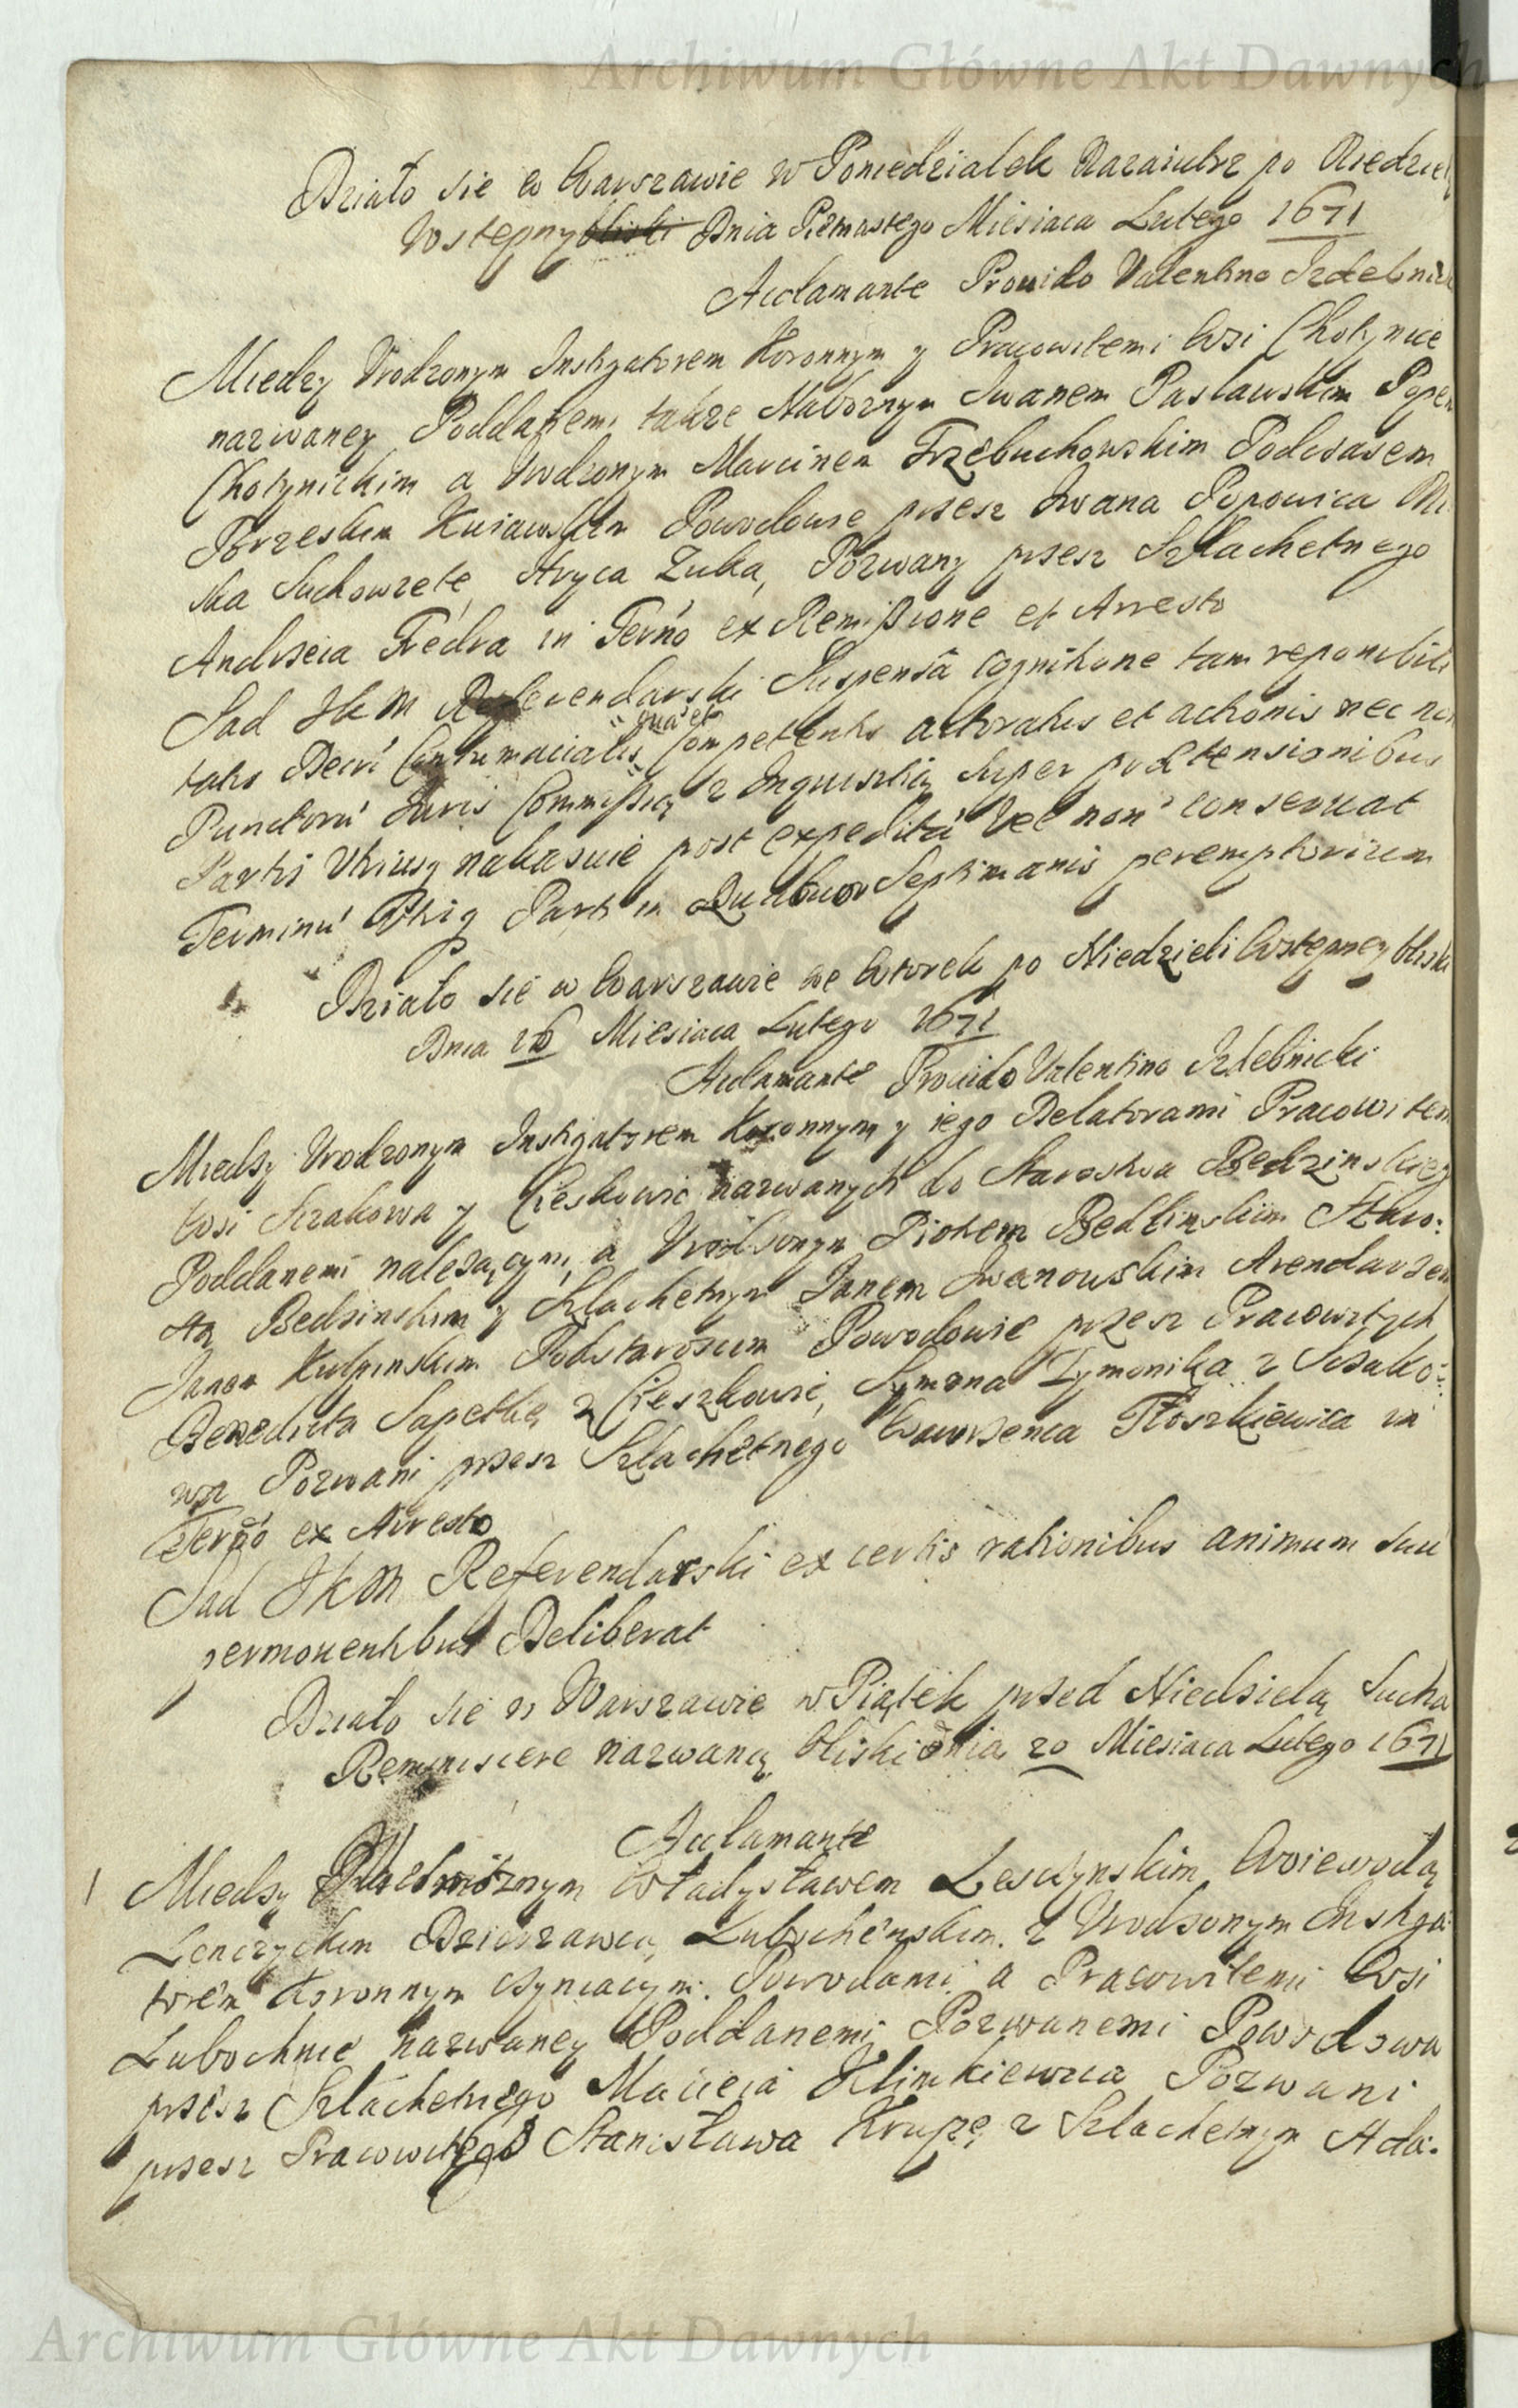 Archiwum Główne Akt Dawnych
Działo sie w Warszawie w Poniedziałek Nazaiutrz po Niedzieli
Wstępny bliski Dnia Piętnastego Miesiaca Lutego 1671
Acclamante Prouido Valentino Izdebnicki
Miedzy Vrodzonym Instigatorem Koronnym y Pracowitemi Wsi Chotynice
nazwaney Poddanemi także Nabożnym Iwanem Pasławskim Popem
Chotynickim a Vrodzonym Marcinem Trzebuchowskim Podczaszem
Brzeskim Kuiawskim Powodowie przesz Iwana Popowica
Suchowzete, Hryca Zuka, Pozwany przesz Szlachetnego
Andrzeia Fredra in Termo ex Remissione et Arresto
Sąd JKM Referendarski Suspensa cognitione tam
talis Decri Contumacialis quā et Competentis actoratus et actionis nec non
Punctorū Iuris Commissią z Inquisitią super prætensionibus
Partis Vtriusq nakazuie post expeditā vel non conseruat
Terminū Vtriq Parti in Quatuor Septimanis peremptorium
Działo sie w Warszawie we Wtorek po Niedzieli Wstępney bliski
Dnia 16 Miesiaca Lutego 1671
Acclamante Prouido Valentino Izdebnicki
Miedzy Vrodzonym Instigatorem Koronnym y iego Delatorami Pracowitemi
Wsi Szakowa y Cieskowic nazwanych do Starostwa Bedzinskiego
Poddanemi należącymi, a Vrodzonym Piotrem Bedlinskim Staro:
stą Bedzinskim y Szlachetnym Janem Iwanowskim Arendarzem
Janem Kulpinskim Podstaroscim Powodowie przesz Pracowitych
Benedicta Sapetkę z Cieszkowic, Symona Tymonika z Szako:
wa Pozwani przesz Szlachetnego Wawrzenca Tłoszkiewica in
Termo ex Arresto
Sąd JKM Referendarski ex certis rationibus animum suū
permouentibus Deliberat
Działo sie w Warszawie w Piątek przed Niedzielą Sucha
Reminiscere nazwaną bliski Dnia 20 Miesiaca Lutego 1671
Acclamante
1 Miedzy Wielmożnym Władysławem Lesczynskim Woiewodą
Lenczyckim Dzierzawcą Lubochenskim. z Vrodzonym Instiga:
torem Koronnym czyniącymi Powodami, a Pracowitemi Wsi
Lubochnie nazwaney Poddanemi Pozwanemi Powodowa
przesz Szlachetnego Macieia Klimkiewica Pozwani
przesz Pracowitego Stanisława Krupę, z Szlachetnym Ada:
Archiwum Główne Akt Dawnych